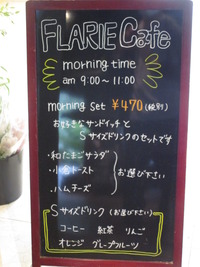 FLARIE Cafe
morning time
am 9:00〜11:00
morning set ¥470(税別)
お好きなサンドイッチと
Sサイズドリンクのセットです
・和たまごサラダ
・小倉トースト
・ハムチーズ
お選び下さい
Sサイズドリンク(お選び下さい)
コーヒー 紅茶 りんご
オレンジ グレープフルーツ